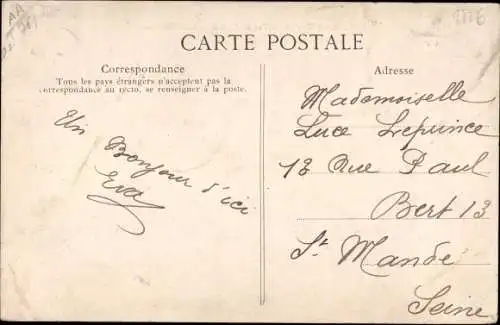 CARTE POSTALE
Correspondance
Tous les pays étrangers n'acceptent pas la
correspondance au recto, se renseigner à la poste.
Un Bonjour d'ici
Eva
Adresse
Mademoiselle
Luce Leprince
13 Rue Paul
Bert 13
St Mandé
Seine